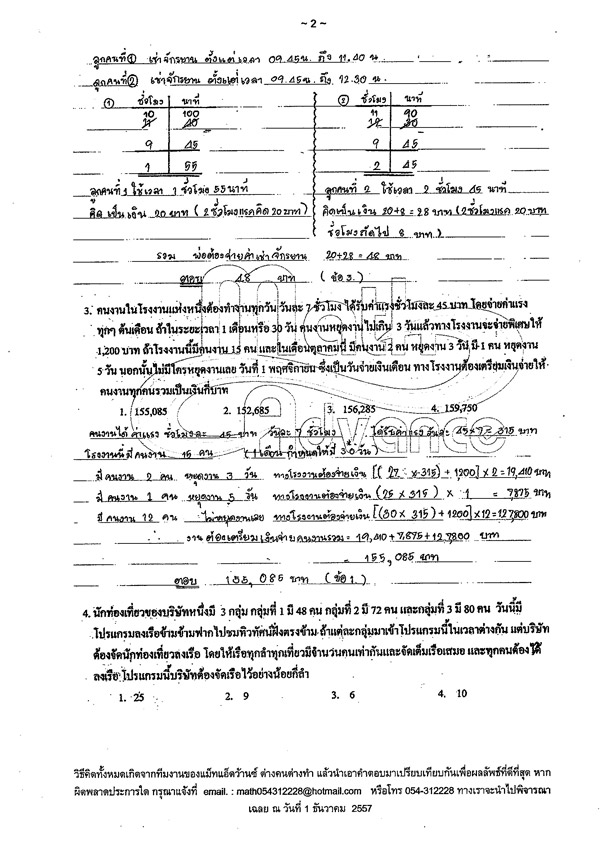 ~ 2 ~
ลูกคนที่① เช่าจักรยาน ตั้งแต่เวลา 09.45น. ถึง 11.40 น.
ลูกคนที่② เช่าจักรยาน ตั้งแต่เวลา 09.45น. ถึง 12.30 น.
① ชั่วโมง นาที
10 100
11 40
9 45
1 55
② ชั่วโมง นาที
11 90
12 30
9 45
2 45
ลูกคนที่ 1 ใช้เวลา 1 ชั่วโมง 55 นาที
คิดเป็นเงิน 20 บาท (2 ชั่วโมงแรกคิด 20 บาท)
ลูกคนที่ 2 ใช้เวลา 2 ชั่วโมง 45 นาที
คิดเป็นเงิน 20+8 = 28 บาท (2 ชั่วโมงแรก 20 บาท
ชั่วโมงถัดไป 8 บาท)
รวม พ่อต้องจ่ายค่าเช่าจักรยาน 20+28 = 48 บาท
ตอบ 48 บาท (ข้อ 3.)
3. คนงานในโรงงานแห่งหนึ่งต้องทำงานทุกวัน วันละ 7 ชั่วโมง ได้รับค่าแรงชั่วโมงละ 45 บาท โดยจ่ายค่าแรง
ทุกๆ ต้นเดือน ถ้าในระยะเวลา 1 เดือนหรือ 30 วัน คนงานหยุดงานไม่เกิน 3 วันแล้วทางโรงงานจะจ่ายพิเศษให้
1,200 บาท ถ้าโรงงานนี้มีคนงาน 15 คน และในเดือนตุลาคมนี้ มีคนงาน 2 คน หยุดงาน 3 วัน มี 1 คน หยุดงาน
5 วัน นอกนั้นไม่มีใครหยุดงานเลย วันที่ 1 พฤศจิกายน ซึ่งเป็นวันจ่ายเงินเดือน ทางโรงงานต้องเตรียมเงินจ่ายให้
คนงานทุกคนรวมเป็นเงินกี่บาท
1. 155,085 2. 152,685 3. 156,285 4. 159,750
คนงานได้ ค่าแรง ชั่วโมงละ 45 บาท วันละ 7 ชั่วโมง ได้รับค่าแรงวันละ 45×7 = 315 บาท
โรงงานนี้มีคนงาน 15 คน (1 เดือน กำหนดให้มี 30 วัน)
มีคนงาน 2 คน หยุดงาน 3 วัน ทางโรงงานต้องจ่ายเงิน [(27 × 315) + 1200] × 2 = 19,410 บาท
มีคนงาน 1 คน หยุดงาน 5 วัน ทางโรงงานต้องจ่ายเงิน (25 × 315) × 1 = 7875 บาท
มีคนงาน 12 คน ไม่หยุดงานเลย ทางโรงงานต้องจ่ายเงิน [(30 × 315) + 1200] × 12 = 127800 บาท
งานต้องเตรียมเงินจ่ายคนงานรวม = 19,410 + 7,875 + 127,800 บาท
= 155,085 บาท
ตอบ 155,085 บาท (ข้อ 1.)
4. นักท่องเที่ยวของบริษัทหนึ่งมี 3 กลุ่ม กลุ่มที่ 1 มี 48 คน กลุ่มที่ 2 มี 72 คน และกลุ่มที่ 3 มี 80 คน วันนี้มี
โปรแกรมลงเรือข้ามข้ามฟากไปชมทิวทัศน์ฝั่งตรงข้าม ถ้าแต่ละกลุ่มมาเข้าโปรแกรมนี้ในเวลาต่างกัน แต่บริษัท
ต้องจัดนักท่องเที่ยวลงเรือ โดยให้เรือทุกลำทุกเที่ยวมีจำนวนคนเท่ากันและจัดเต็มเรือเสมอ และทุกคนต้องได้
ลงเรือ โปรแกรมนี้บริษัทต้องจัดเรือไว้อย่างน้อยกี่ลำ
1. 25 2. 9 3. 6 4. 10
วิธีคิดทั้งหมดเกิดจากทีมงานของแม็ทแอ็ดว้านซ์ ต่างคนต่างทำ แล้วนำเอาคำตอบมาเปรียบเทียบกันเพื่อผลลัพธ์ที่ดีที่สุด หาก
ผิดพลาดประการใด กรุณาแจ้งที่ email. : math054312228@hotmail.com หรือโทร 054-312228 ทางเราจะนำไปพิจารณา
เฉลย ณ วันที่ 1 ธันวาคม 2557